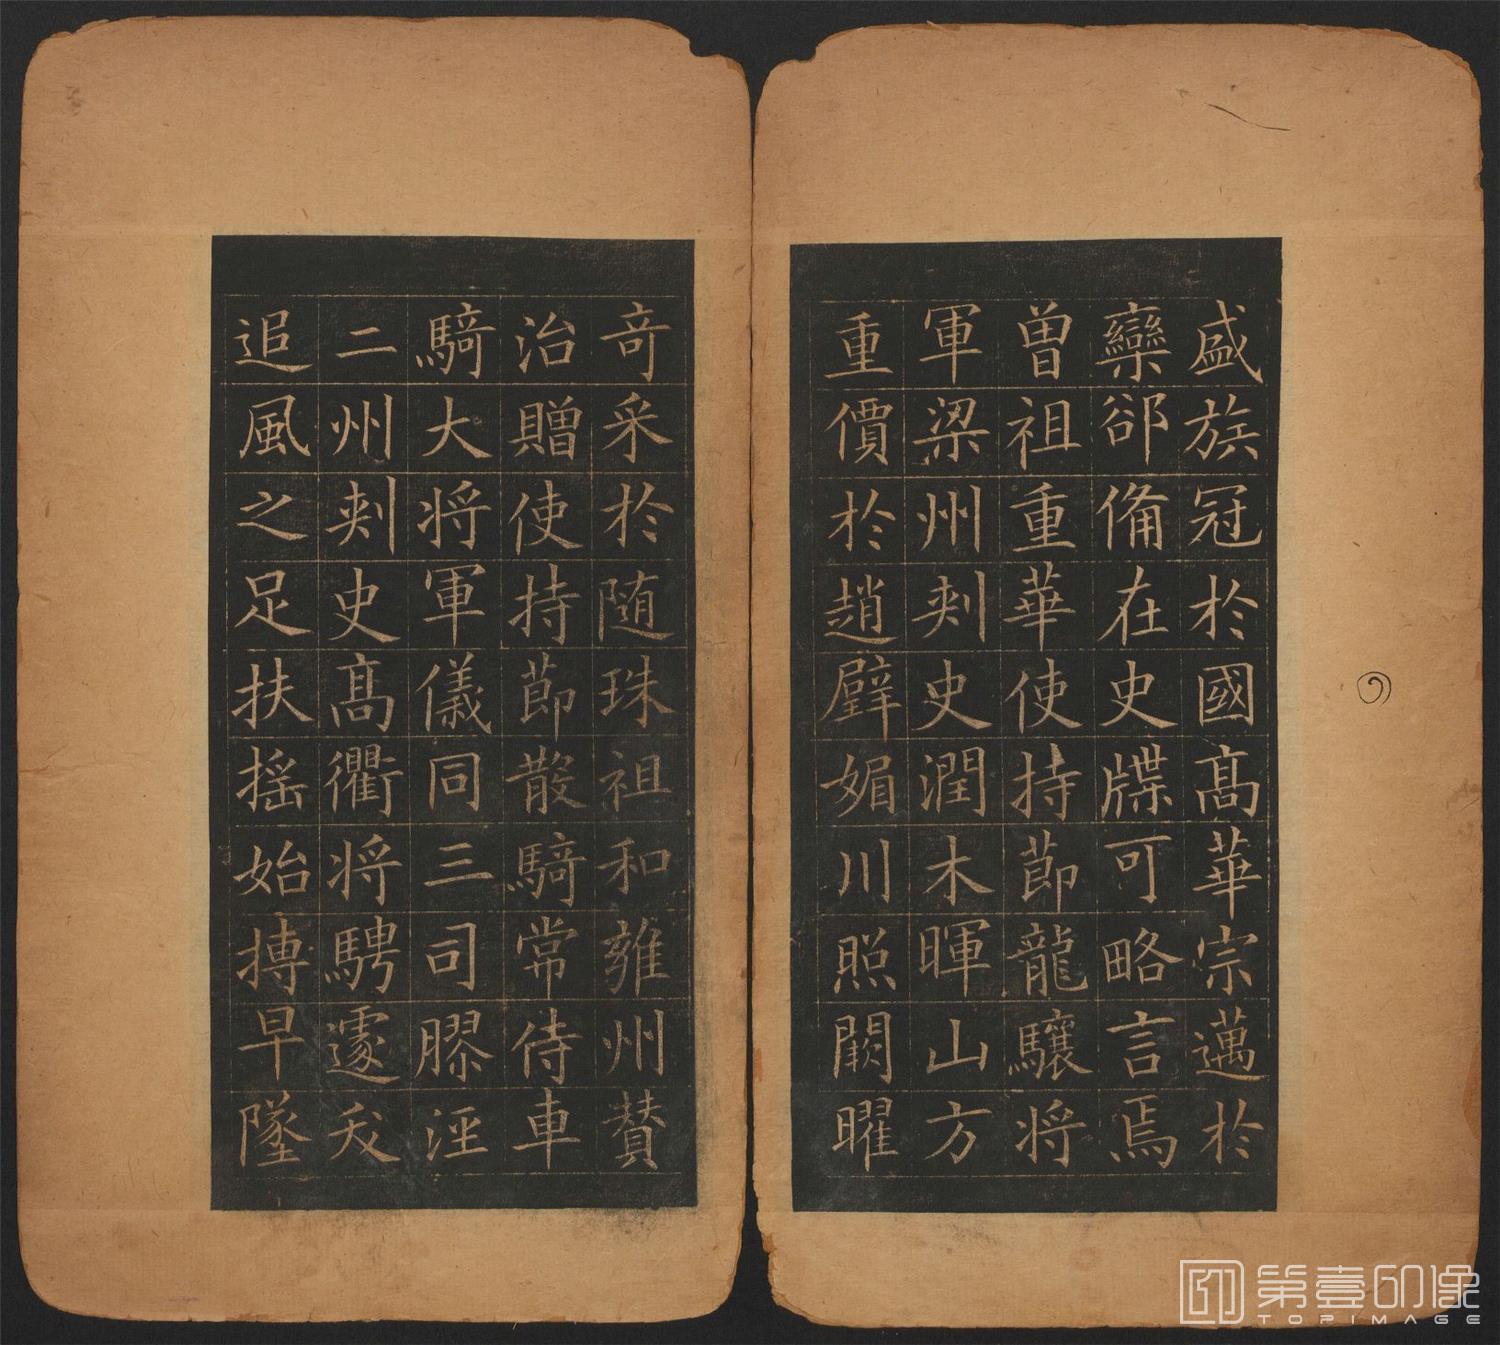 盛族冠於國高華宗邁於
欒郤備在史牒可略言焉
曾祖重華使持節龍驤將
軍梁州刺史潤木暉山方
重價於趙璧媚川照闕曜
奇采於隨珠祖和雍州贊
治贈使持節散騎常侍車
騎大將軍儀同三司膠涇
二州刺史高衢將騁遽夭
追風之足扶搖始搏早墜
第壹印像
TOPIMAGE